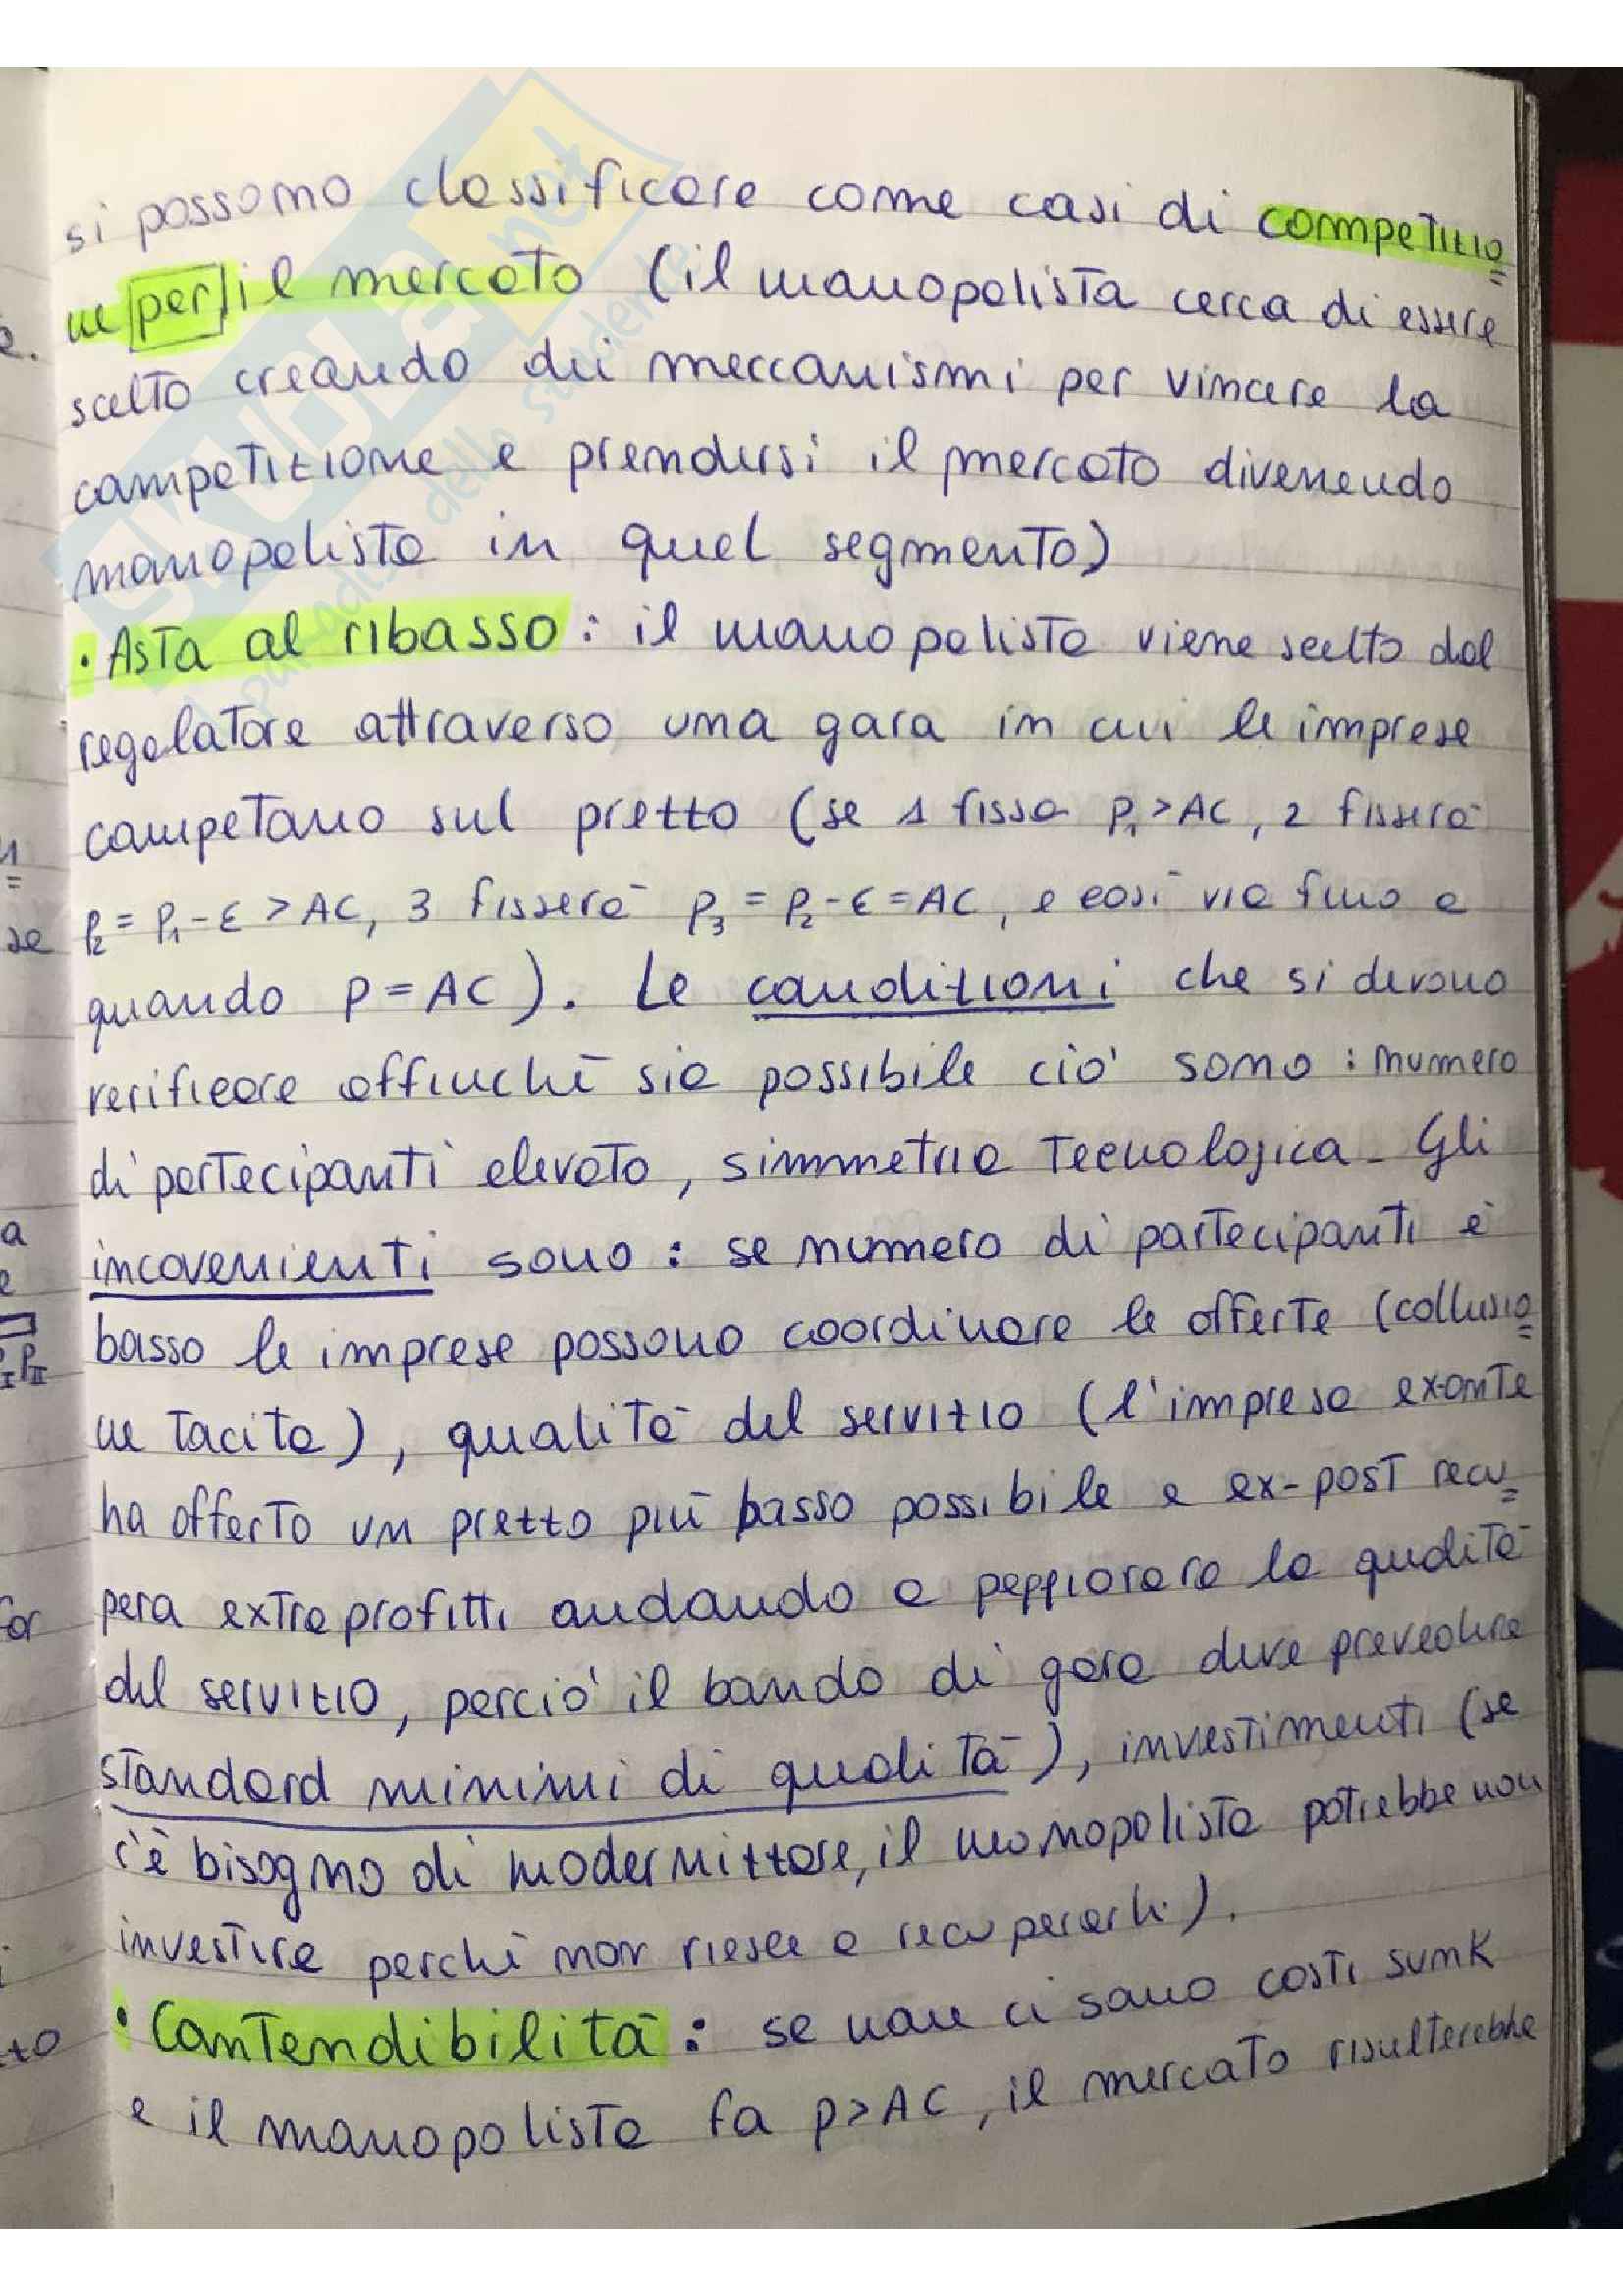 si possono classificare come casi di competizio
ne per il mercato (il monopolista cerca di essere
scelto creando dei meccanismi per vincere la
competizione e prendersi il mercato divenendo
monopolista in quel segmento)
• Asta al ribasso: il monopolista viene scelto dal
regolatore attraverso una gara in cui le imprese
competono sul prezzo (se 1 fissa p₁>AC, 2 fisserà
p₂ = p₁-ε > AC, 3 fisserà p₃ = p₂-ε = AC, e così via fino a
quando p = AC). Le condizioni che si devono
verificare affinchè sia possibile ciò sono: numero
di partecipanti elevato, simmetria tecnologica. Gli
incovenienti sono: se numero di partecipanti è
basso le imprese possono coordinare le offerte (collusio
ne tacita), qualità del servizio (l'impresa ex-ante
ha offerto un prezzo più basso possibile e ex-post recu
pera extraprofitti andando a peggiorare la qualità
del servizio, perciò il bando di gara deve prevedere
standard minimi di qualità), investimenti (se
c'è bisogno di modernizzare, il monopolista potrebbe non
investire perchè non riesce a recuperarli).
• Contendibilità: se non ci sono costi sunk
e il monopolista fa p>AC, il mercato risulterebbe
SKUOLA.net
dello studente